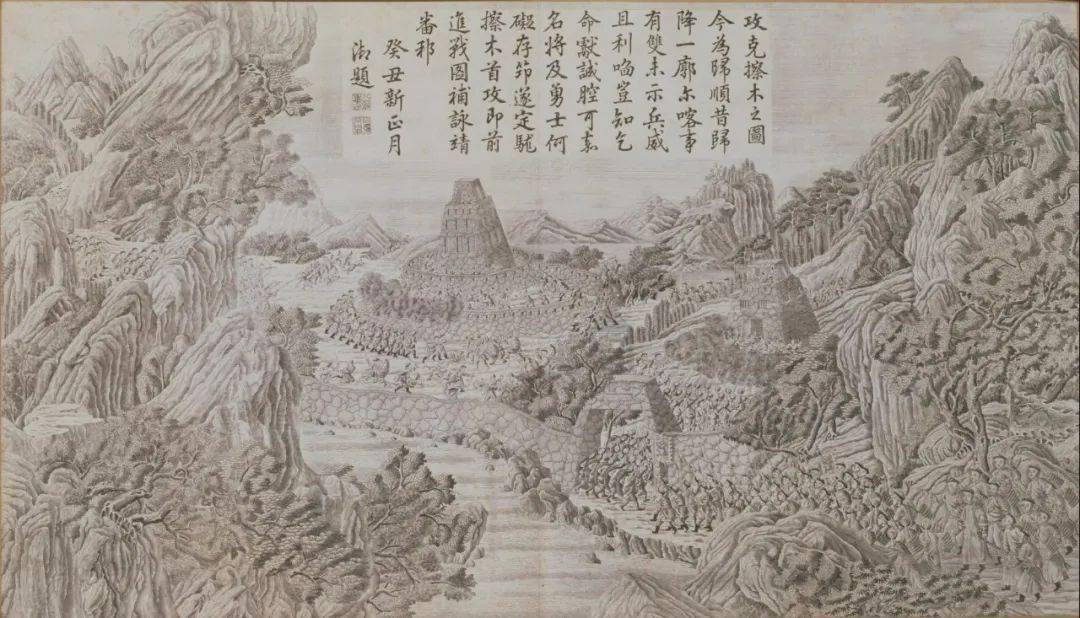 攻克擦木之圖
今為歸順昔歸
降一廓尔喀事
有雙未示兵威
且利啗豈知乞
命獻誠腔可素
名将及勇士何
礙存笻遂定駹
擦木首攻即前
進戰圖補詠靖
番邦
癸丑新正月
御題